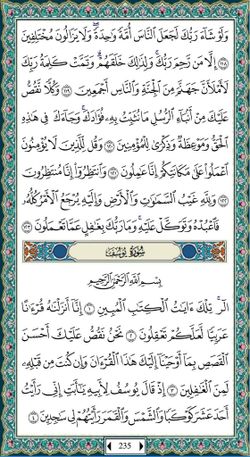 وَلَوْ شَآءَ رَبُّكَ لَجَعَلَ ٱلنَّاسَ أُمَّةً وَٰحِدَةً ۖ وَلَا يَزَالُونَ مُخْتَلِفِينَ
﴿١١٨﴾ إِلَّا مَن رَّحِمَ رَبُّكَ ۚ وَلِذَٰلِكَ خَلَقَهُمْ ۗ وَتَمَّتْ كَلِمَةُ رَبِّكَ
لَأَمْلَأَنَّ جَهَنَّمَ مِنَ ٱلْجِنَّةِ وَٱلنَّاسِ أَجْمَعِينَ ﴿١١٩﴾ وَكُلًّا نَّقُصُّ
عَلَيْكَ مِنْ أَنۢبَآءِ ٱلرُّسُلِ مَا نُثَبِّتُ بِهِۦ فُؤَادَكَ ۚ وَجَآءَكَ فِى هَٰذِهِ
ٱلْحَقُّ وَمَوْعِظَةٌ وَذِكْرَىٰ لِلْمُؤْمِنِينَ ﴿١٢٠﴾ وَقُل لِّلَّذِينَ لَا يُؤْمِنُونَ
ٱعْمَلُوا۟ عَلَىٰ مَكَانَتِكُمْ إِنَّا عَٰمِلُونَ ﴿١٢١﴾ وَٱنتَظِرُوٓا۟ إِنَّا مُنتَظِرُونَ
﴿١٢٢﴾ وَلِلَّهِ غَيْبُ ٱلسَّمَٰوَٰتِ وَٱلْأَرْضِ وَإِلَيْهِ يُرْجَعُ ٱلْأَمْرُ كُلُّهُۥ
فَٱعْبُدْهُ وَتَوَكَّلْ عَلَيْهِ ۚ وَمَا رَبُّكَ بِغَٰفِلٍ عَمَّا تَعْمَلُونَ ﴿١٢٣﴾
سُورَةُ يُوسُفَ
بِسْمِ ٱللَّهِ ٱلرَّحْمَٰنِ ٱلرَّحِيمِ
الٓر ۚ تِلْكَ ءَايَٰتُ ٱلْكِتَٰبِ ٱلْمُبِينِ ﴿١﴾ إِنَّآ أَنزَلْنَٰهُ قُرْءَٰنًا
عَرَبِيًّا لَّعَلَّكُمْ تَعْقِلُونَ ﴿٢﴾ نَحْنُ نَقُصُّ عَلَيْكَ أَحْسَنَ
ٱلْقَصَصِ بِمَآ أَوْحَيْنَآ إِلَيْكَ هَٰذَا ٱلْقُرْءَانَ وَإِن كُنتَ مِن قَبْلِهِۦ
لَمِنَ ٱلْغَٰفِلِينَ ﴿٣﴾ إِذْ قَالَ يُوسُفُ لِأَبِيهِ يَٰٓأَبَتِ إِنِّى رَأَيْتُ
أَحَدَ عَشَرَ كَوْكَبًا وَٱلشَّمْسَ وَٱلْقَمَرَ رَأَيْتُهُمْ لِى سَٰجِدِينَ ﴿٤﴾
235